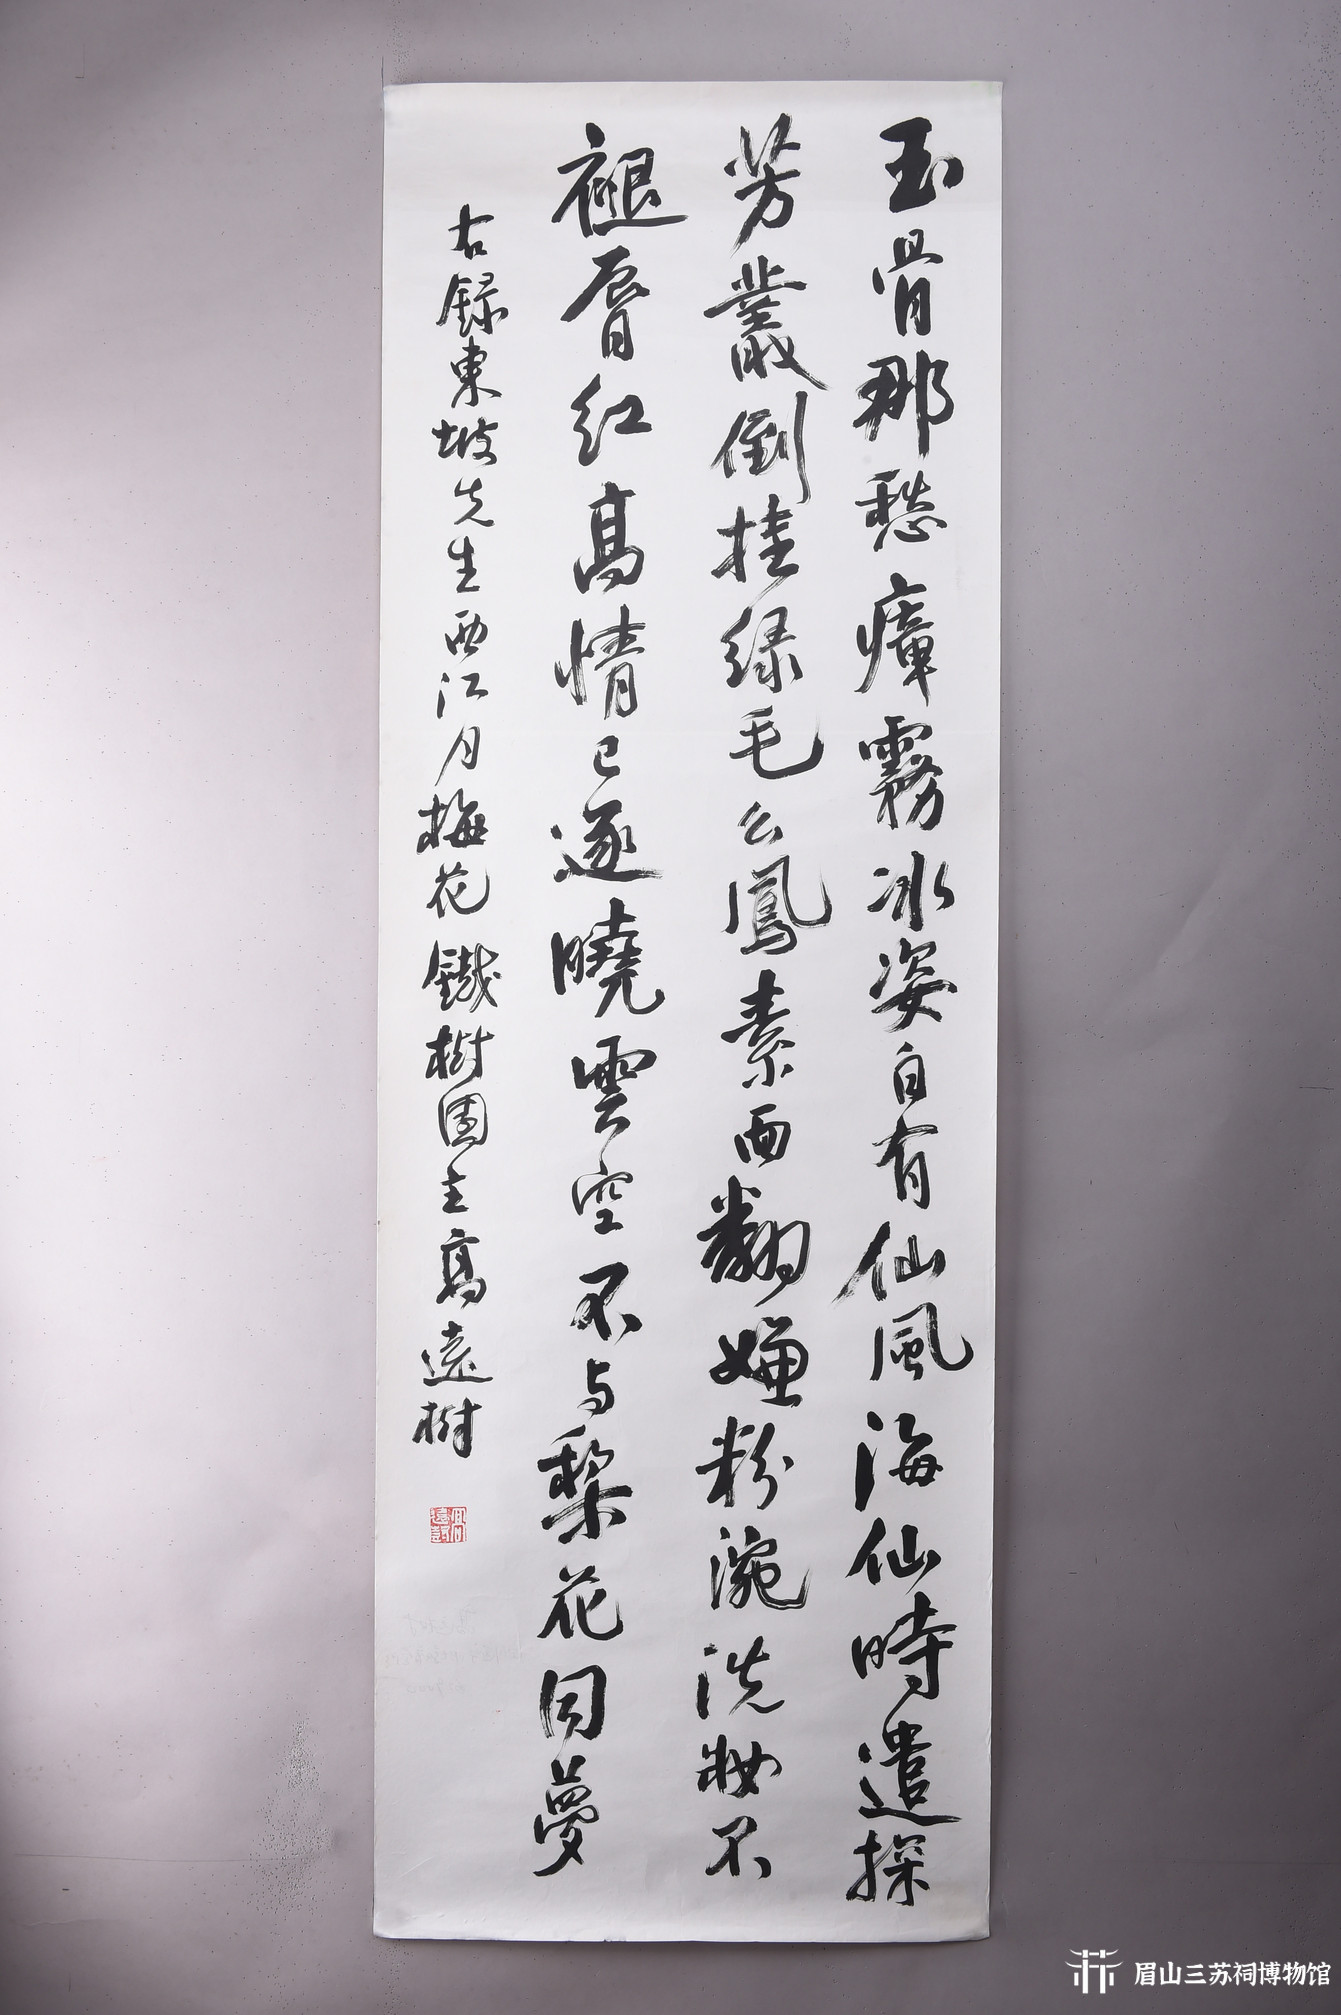 玉骨那愁瘴霧冰姿自有仙風海仙時遣探
芳叢倒挂绿毛么鳳素面翻嫌粉涴洗妝不
褪唇红高情已逐曉雲空不与梨花同夢
右録東坡先生西江月梅花鐵樹園主高遠樹
眉山三苏祠博物馆